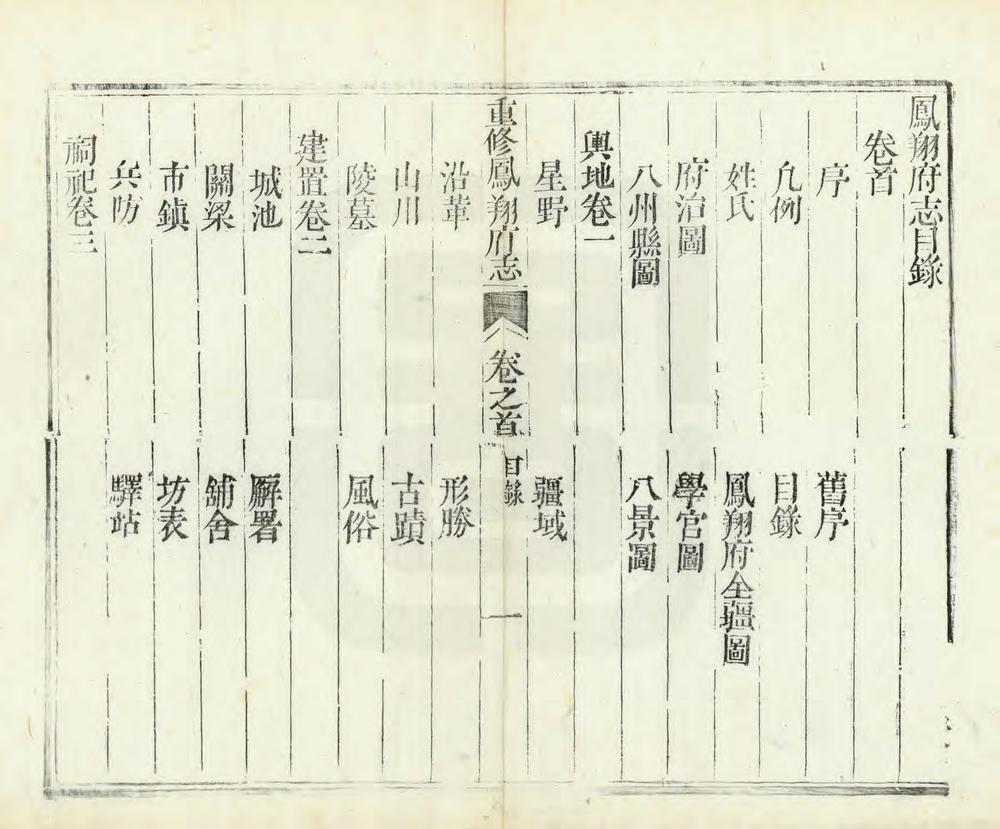 鳳翔府志目錄
卷首
序 舊序
凡例 目錄
姓氏 鳳翔府全疆圖
府治圖 學宮圖
八州縣圖 八景圖
輿地卷一
星野 疆域
重修鳳翔府志 卷之首 目錄 一
沿革 形勝
山川 古蹟
陵墓 風俗
建置卷二
城池 廨署
關梁 舖舍
市鎮 坊表
兵防 驛站
祠祀卷三